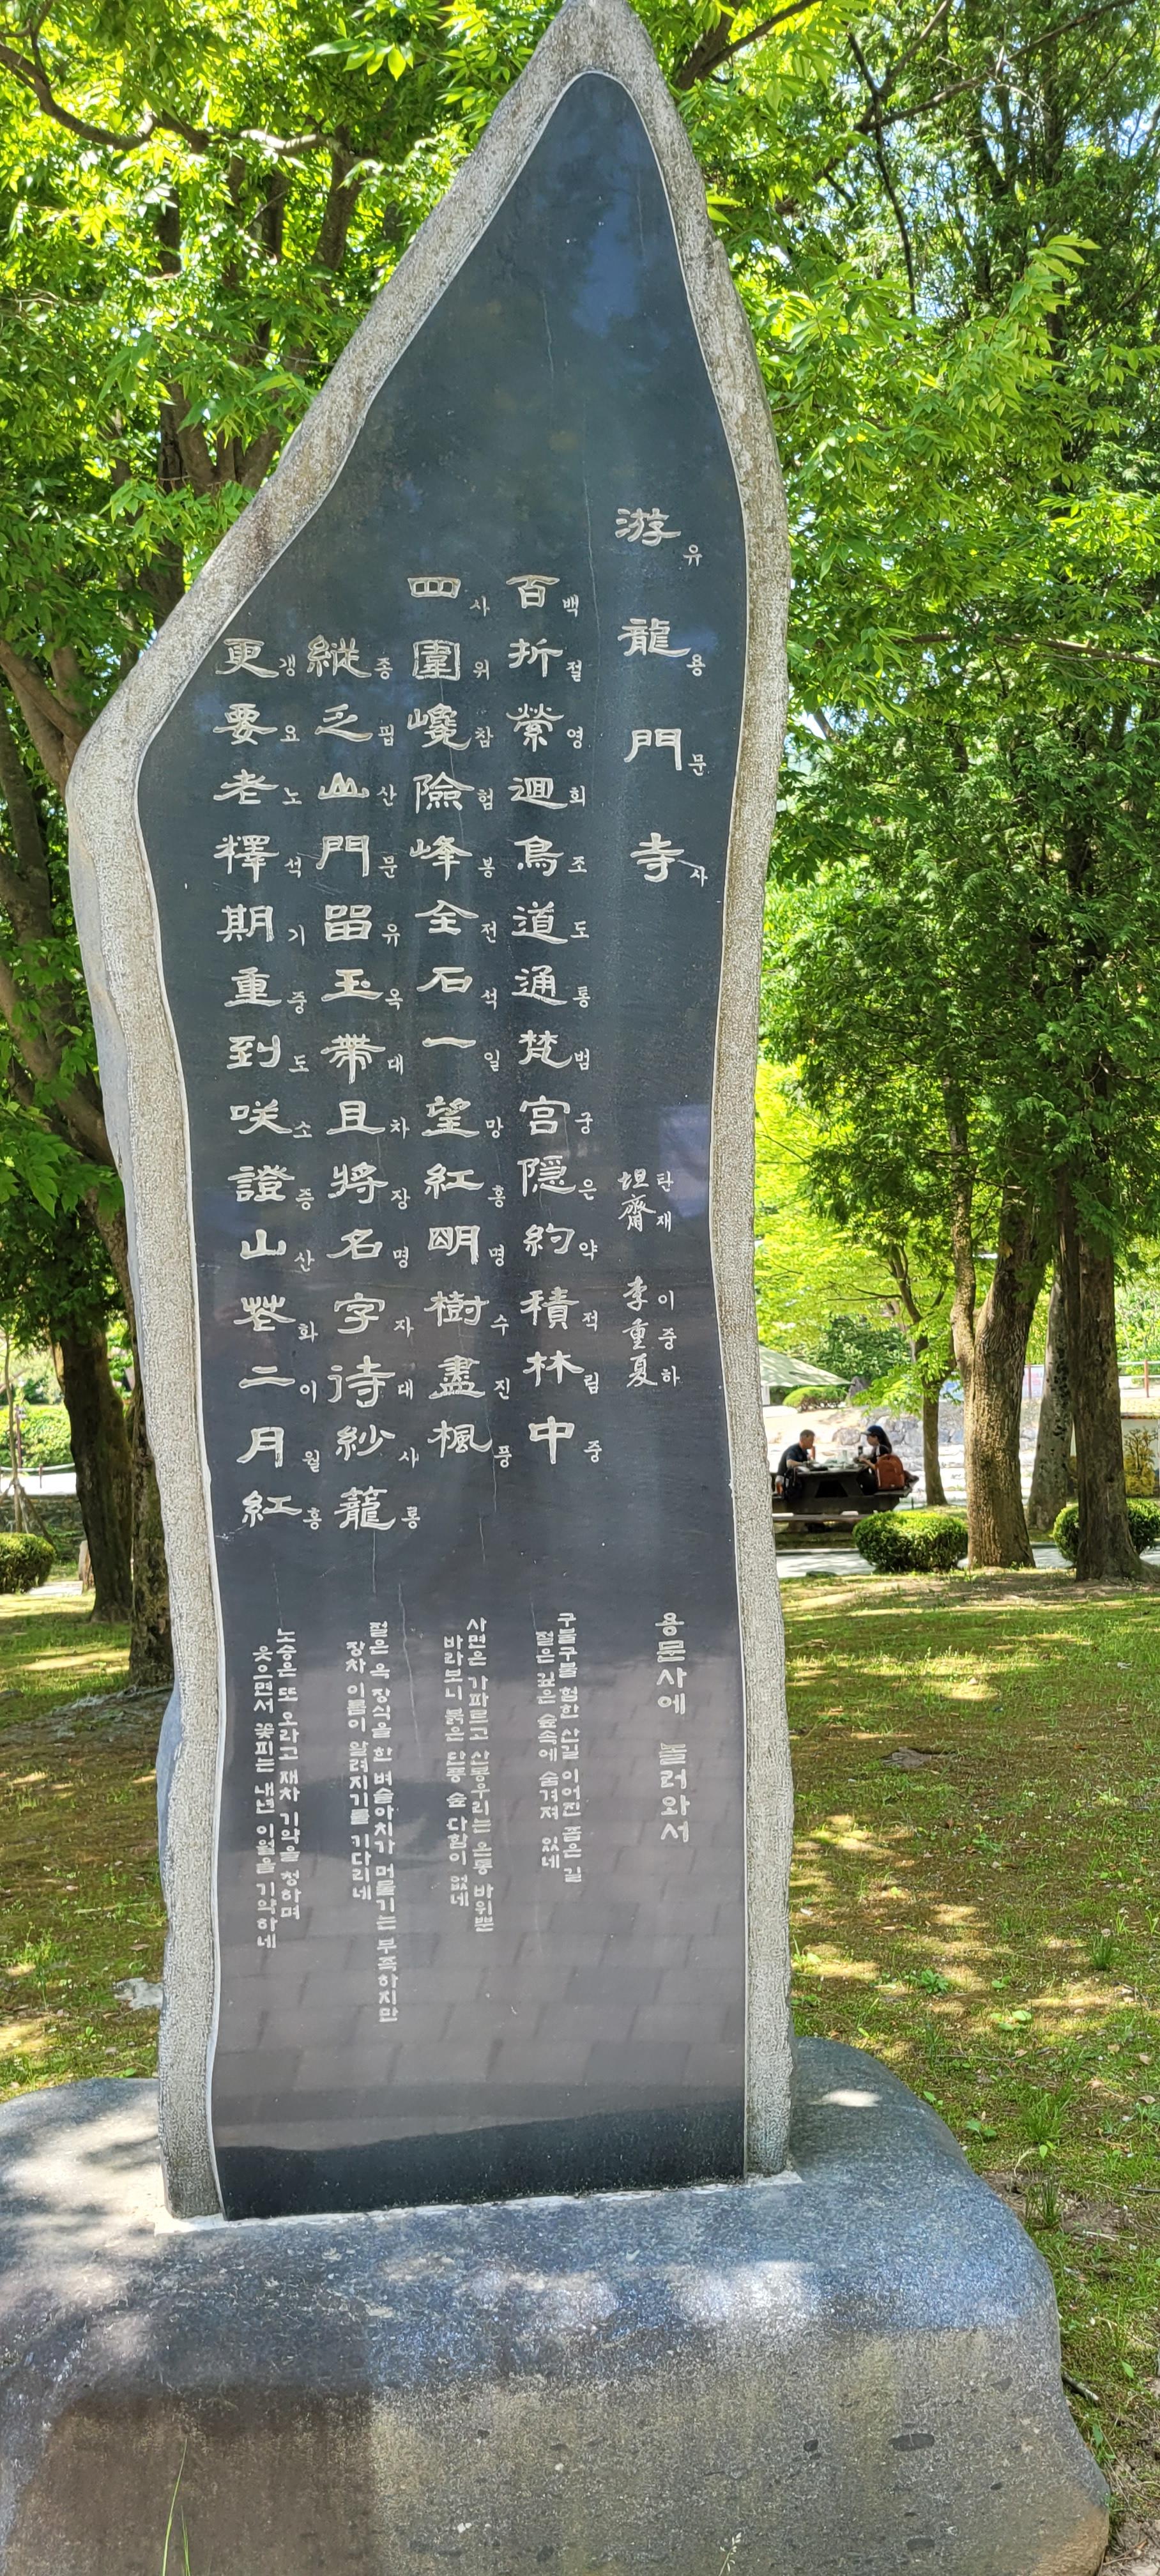 游龍門寺
유용문사
坦齋 李重夏
탄재 이중하
百折縈迴鳥道通梵宮隠約積林中
백절영회조도통범궁은약적림중
四圍巉險峰全石一望紅明樹盡楓
사위참험봉전석일망홍명수진풍
縱乏山門留玉帶且將名字待紗籠
종핍산문유옥대차장명자대사롱
更要老釋期重到咲證山花二月紅
갱요노석기중도소증산화이월홍
용문사에 놀러와서
구불구불 험한 산길 이어진 좁은 길
절은 깊은 숲속에 숨겨져 있네
사면은 가파르고 산봉우리는 온통 바위뿐
바라보니 붉은 단풍 숲 다함이 없네
절은 옥 장식을 한 벼슬아치가 머물기는 부족하지만
장차 이름이 알려지기를 기다리네
노승은 또 오라고 재차 기약을 청하며
웃으면서 꽃피는 내년 이월을 기약하네